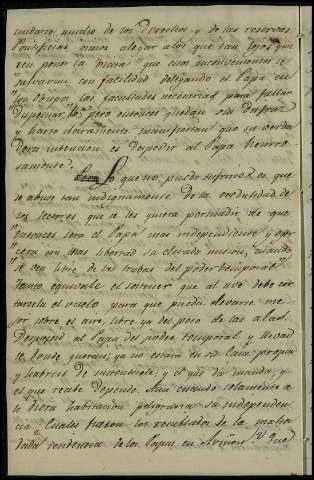 cuidarse mucho de los derechos y de las reservas
Pontificias osase alegar a los que tan lejos que
"ren poner la Tiara" que esos inconvenientes se
"salvarian con facilidad delegando el Papa en
"los Obispos las facultades necesarias para fallar
"y apostolar los pero entonces quedan sin disfraz
"y harto claramente manifiestan que su verda
dera intencion es despedir al Papa honro
samente.
Lo que no puede sufrirse es que
se abuse tan indignamente de la credulidad de
los lectores que se les quiera persuadir de que
"entonces sera el Papa mas independiente y ejer
"cera con mas libertad su elevada mision, cuando
"se vea libre de las trabas del poder temporal"
tanto equivale el sostener que al ave debe cor
társela el vuelo para que pueda elevarse me
jor sobre el aire, libre ya del peso de las alas.
Despojad al Papa del poder temporal y llevad
le donde querais, ya no estara en su Casa propia
y habreis de sucederle; y el que da manda, y
el que recibe depende. Aun cuando solamente se
le diera habitacion peligraria su independen
cia. Cuales fueron los resultados de la malha
dada residencia de los Papas en Aviñon? Y que